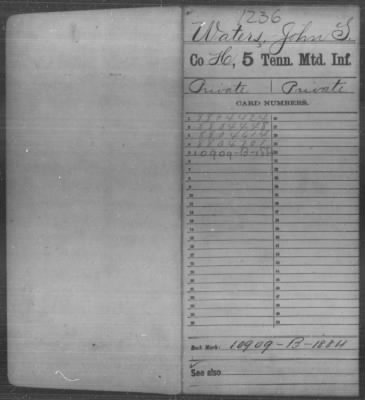 1236
Waters, John S.
Co H, 5 Tenn. Mtd. Inf.
Private | Private
CARD NUMBERS.
1 8804424
2 8804448
3 8804614
4 8804701
5 10909-B-1884
Book Mark: 10909-B-1884
See also